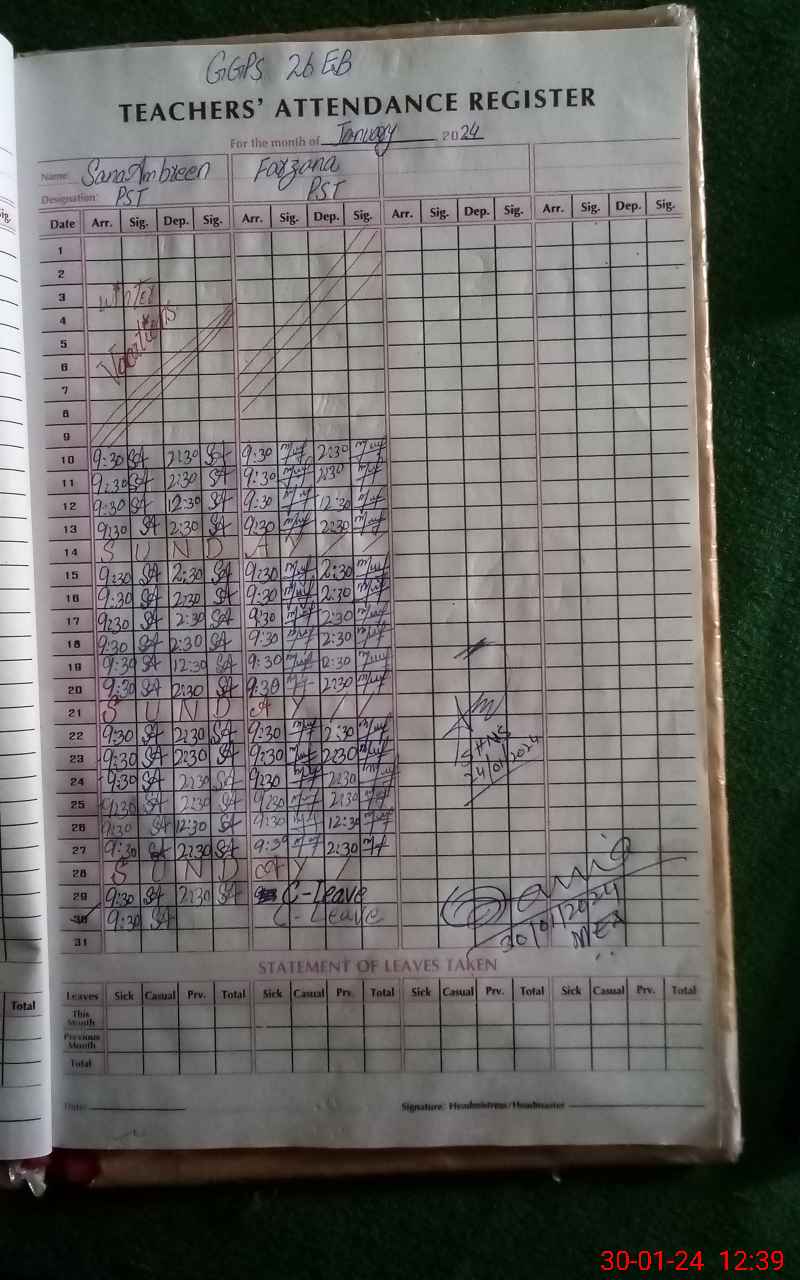 GGPS 26 EB
TEACHERS' ATTENDANCE REGISTER
For the month of January 2024
Name: Sana Ambreen Farzana
Designation: PST PST
Sig. Date Arr. Sig. Dep. Sig. Arr. Sig. Dep. Sig. Arr. Sig. Dep. Sig. Arr. Sig. Dep. Sig.
1
2
3 winter
4
5 Vacations
6
7
8
9
10 9:30 SA 2:30 SA 9:30 2:30
11 9:30 SA 2:30 SA 9:30 2:30
12 9:30 SA 12:30 SA 9:30 12:30
13 9:30 SA 2:30 SA 9:30 2:30
14 S U N D A Y
15 9:30 SA 2:30 SA 9:30 2:30
16 9:30 SA 2:30 SA 9:30 2:30
17 9:30 SA 2:30 SA 9:30 2:30
18 9:30 SA 2:30 SA 9:30 2:30
19 9:30 SA 12:30 SA 9:30 2:30
20 9:30 SA 2:30 SA 9:30 2:30
21 S U N D A Y
22 9:30 SA 2:30 SA 9:30 2:30
23 9:30 SA 2:30 SA 9:30 2:30
24 9:30 SA 2:30 SA 9:30 2:30
24/01/2024
25 9:30 SA 2:30 SA 9:30 2:30
26 9:30 SA 12:30 SA 9:30 12:30
27 9:30 SA 2:30 SA 9:30 2:30
28 S U N D A Y
29 9:30 SA 2:30 SA C-Leave
30 9:30 SA C-Leave
30/01/2024
MEA
31
STATEMENT OF LEAVES TAKEN
Total Leaves Sick Casual Prv. Total Sick Casual Prv. Total Sick Casual Prv. Total Sick Casual Prv. Total
This Month
Previous Month
Total
Date: Signature: Headmistress/Headmaster
30-01-24 12:39